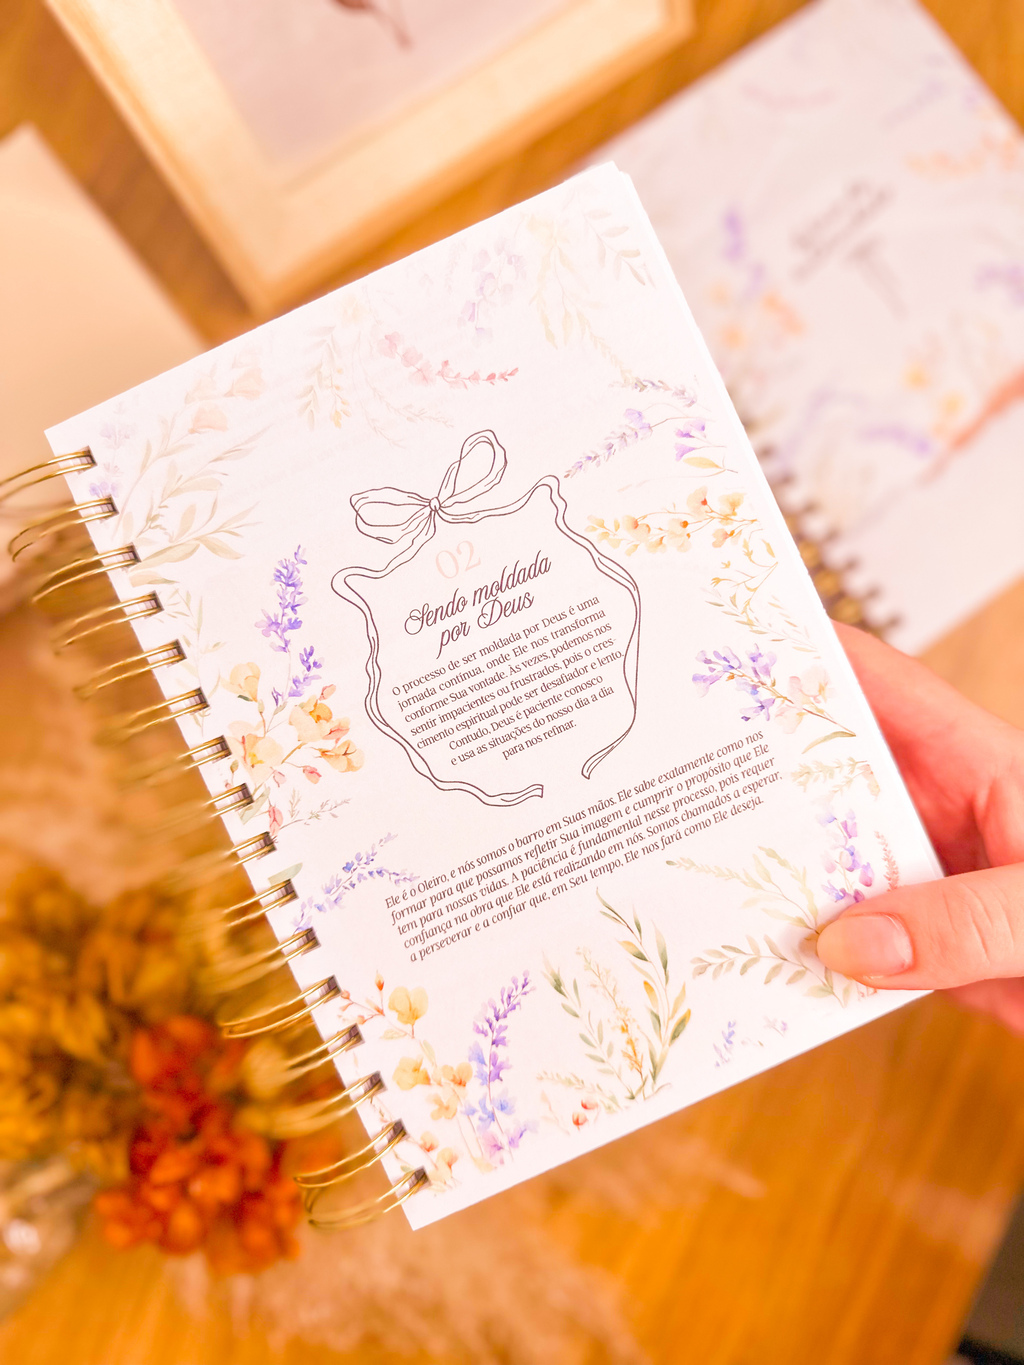 02
Sendo moldada
por Deus
O processo de ser moldada por Deus é uma
jornada contínua, onde Ele nos transforma
conforme Sua vontade. Às vezes, podemos nos
sentir impacientes ou frustrados, pois o cres-
cimento espiritual pode ser desafiador e lento.
Contudo, Deus é paciente conosco
e usa as situações do nosso dia a dia
para nos refinar.
Ele é o Oleiro, e nós somos o barro em Suas mãos. Ele sabe exatamente como nos
formar para que possamos refletir Sua imagem e cumprir o propósito que Ele
tem para nossas vidas. A paciência é fundamental nesse processo, pois requer
confiança na obra que Ele está realizando em nós. Somos chamados a esperar,
a perseverar e a confiar que, em Seu tempo, Ele nos fará como Ele deseja.